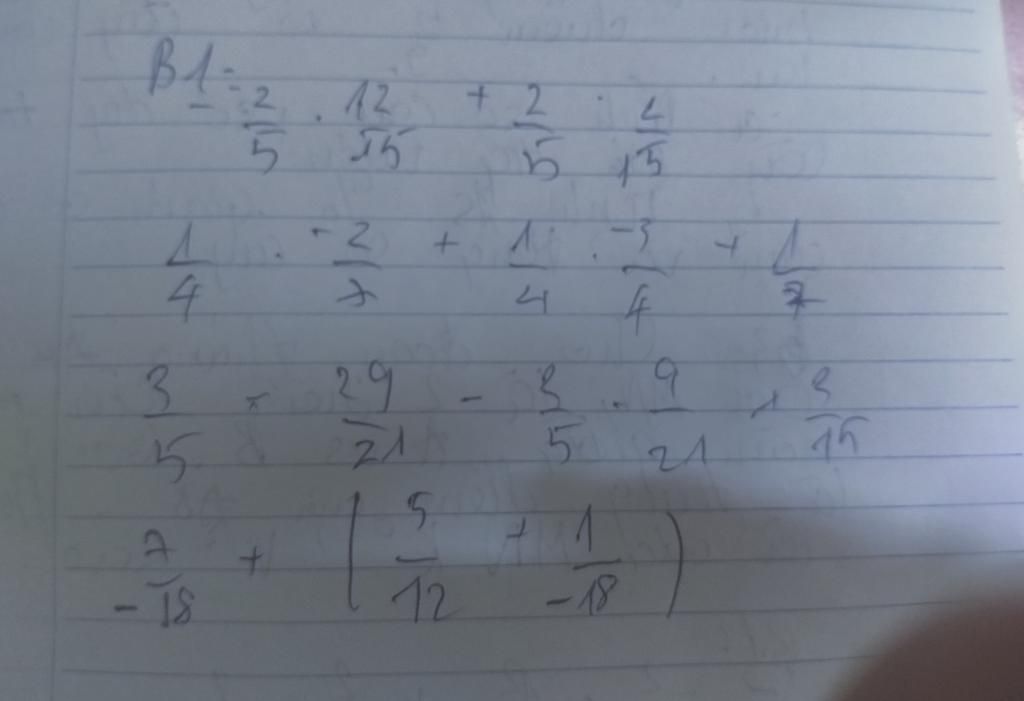 B1: -2/5 . 12/15 + 2/5 . 2/15
1/4 . -2/7 + 1/4 . -3/4 + 1/7
3/5 . 29/21 - 3/5 . 9/21 + 3/15
7/-18 + (5/12 + 1/-18)